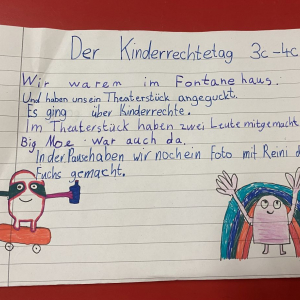 Der Kinderrechtetag 3c-4c
Wir warem im Fontanehaus.
Und haben uns ein Theaterstück angeguckt.
Es ging über Kinderrechte.
Im Theaterstück haben zwei Leute mitgemacht
Big Moe. War auch da.
In der Pause haben wir noch ein Foto mit Reini d
Fuchs gemacht.